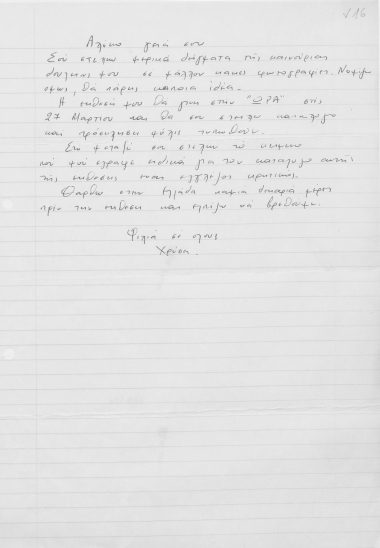 √16
Αλέκο γειά σου
Σού στέλνω μερικά δείγματα της καινούριας
δουλειάς μου σε μάλλον κακές φωτογραφίες. Νομίζω
όμως, θα πάρεις κάποια ιδέα.
Η έκθεσή μου θα γίνη στην "ΩΡΑ" στις
27 Μαρτίου και θα σου στείλω κατάλογο
και πρόσκληση μόλις τυπωθούν.
Στο μεταξύ σου στέλνω το κείμενο
πού μού έγραψε ειδικά για τον κατάλογο αυτής
της έκθεσης ένας εγγλέζος κριτικός.
Θαρθώ στην Ελλάδα καμιά δεκαριά μέρες
πρίν την έκθεση και ελπίζω νά βρεθούμε.
Φιλιά σε όλους
Χρύσα